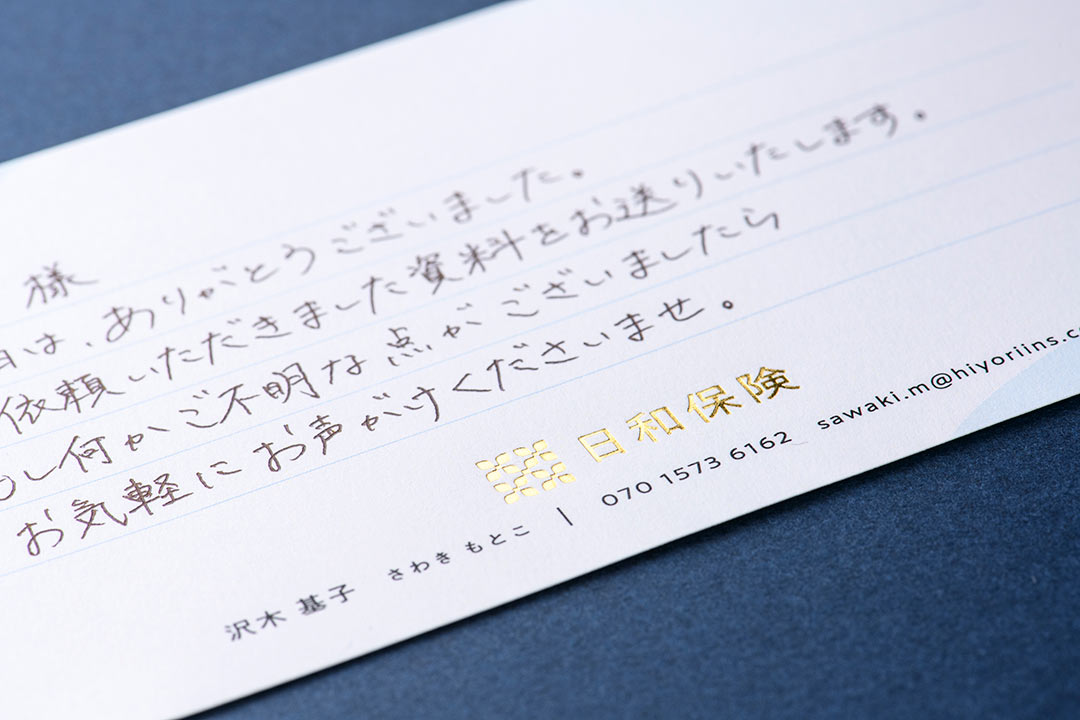 様
日は、ありがとうございました。
依頼いただきました資料をお送りいたします。
もし何かご不明な点がございましたら
お気軽にお声がけくださいませ。
日和保険
沢木 基子 さわき もとこ | 070 1573 6162 sawaki.m@hiyoriins.c